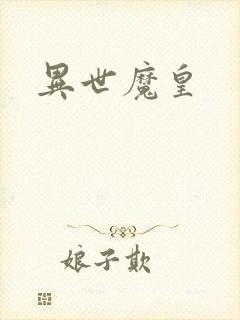 異世魔皇
娘子欺